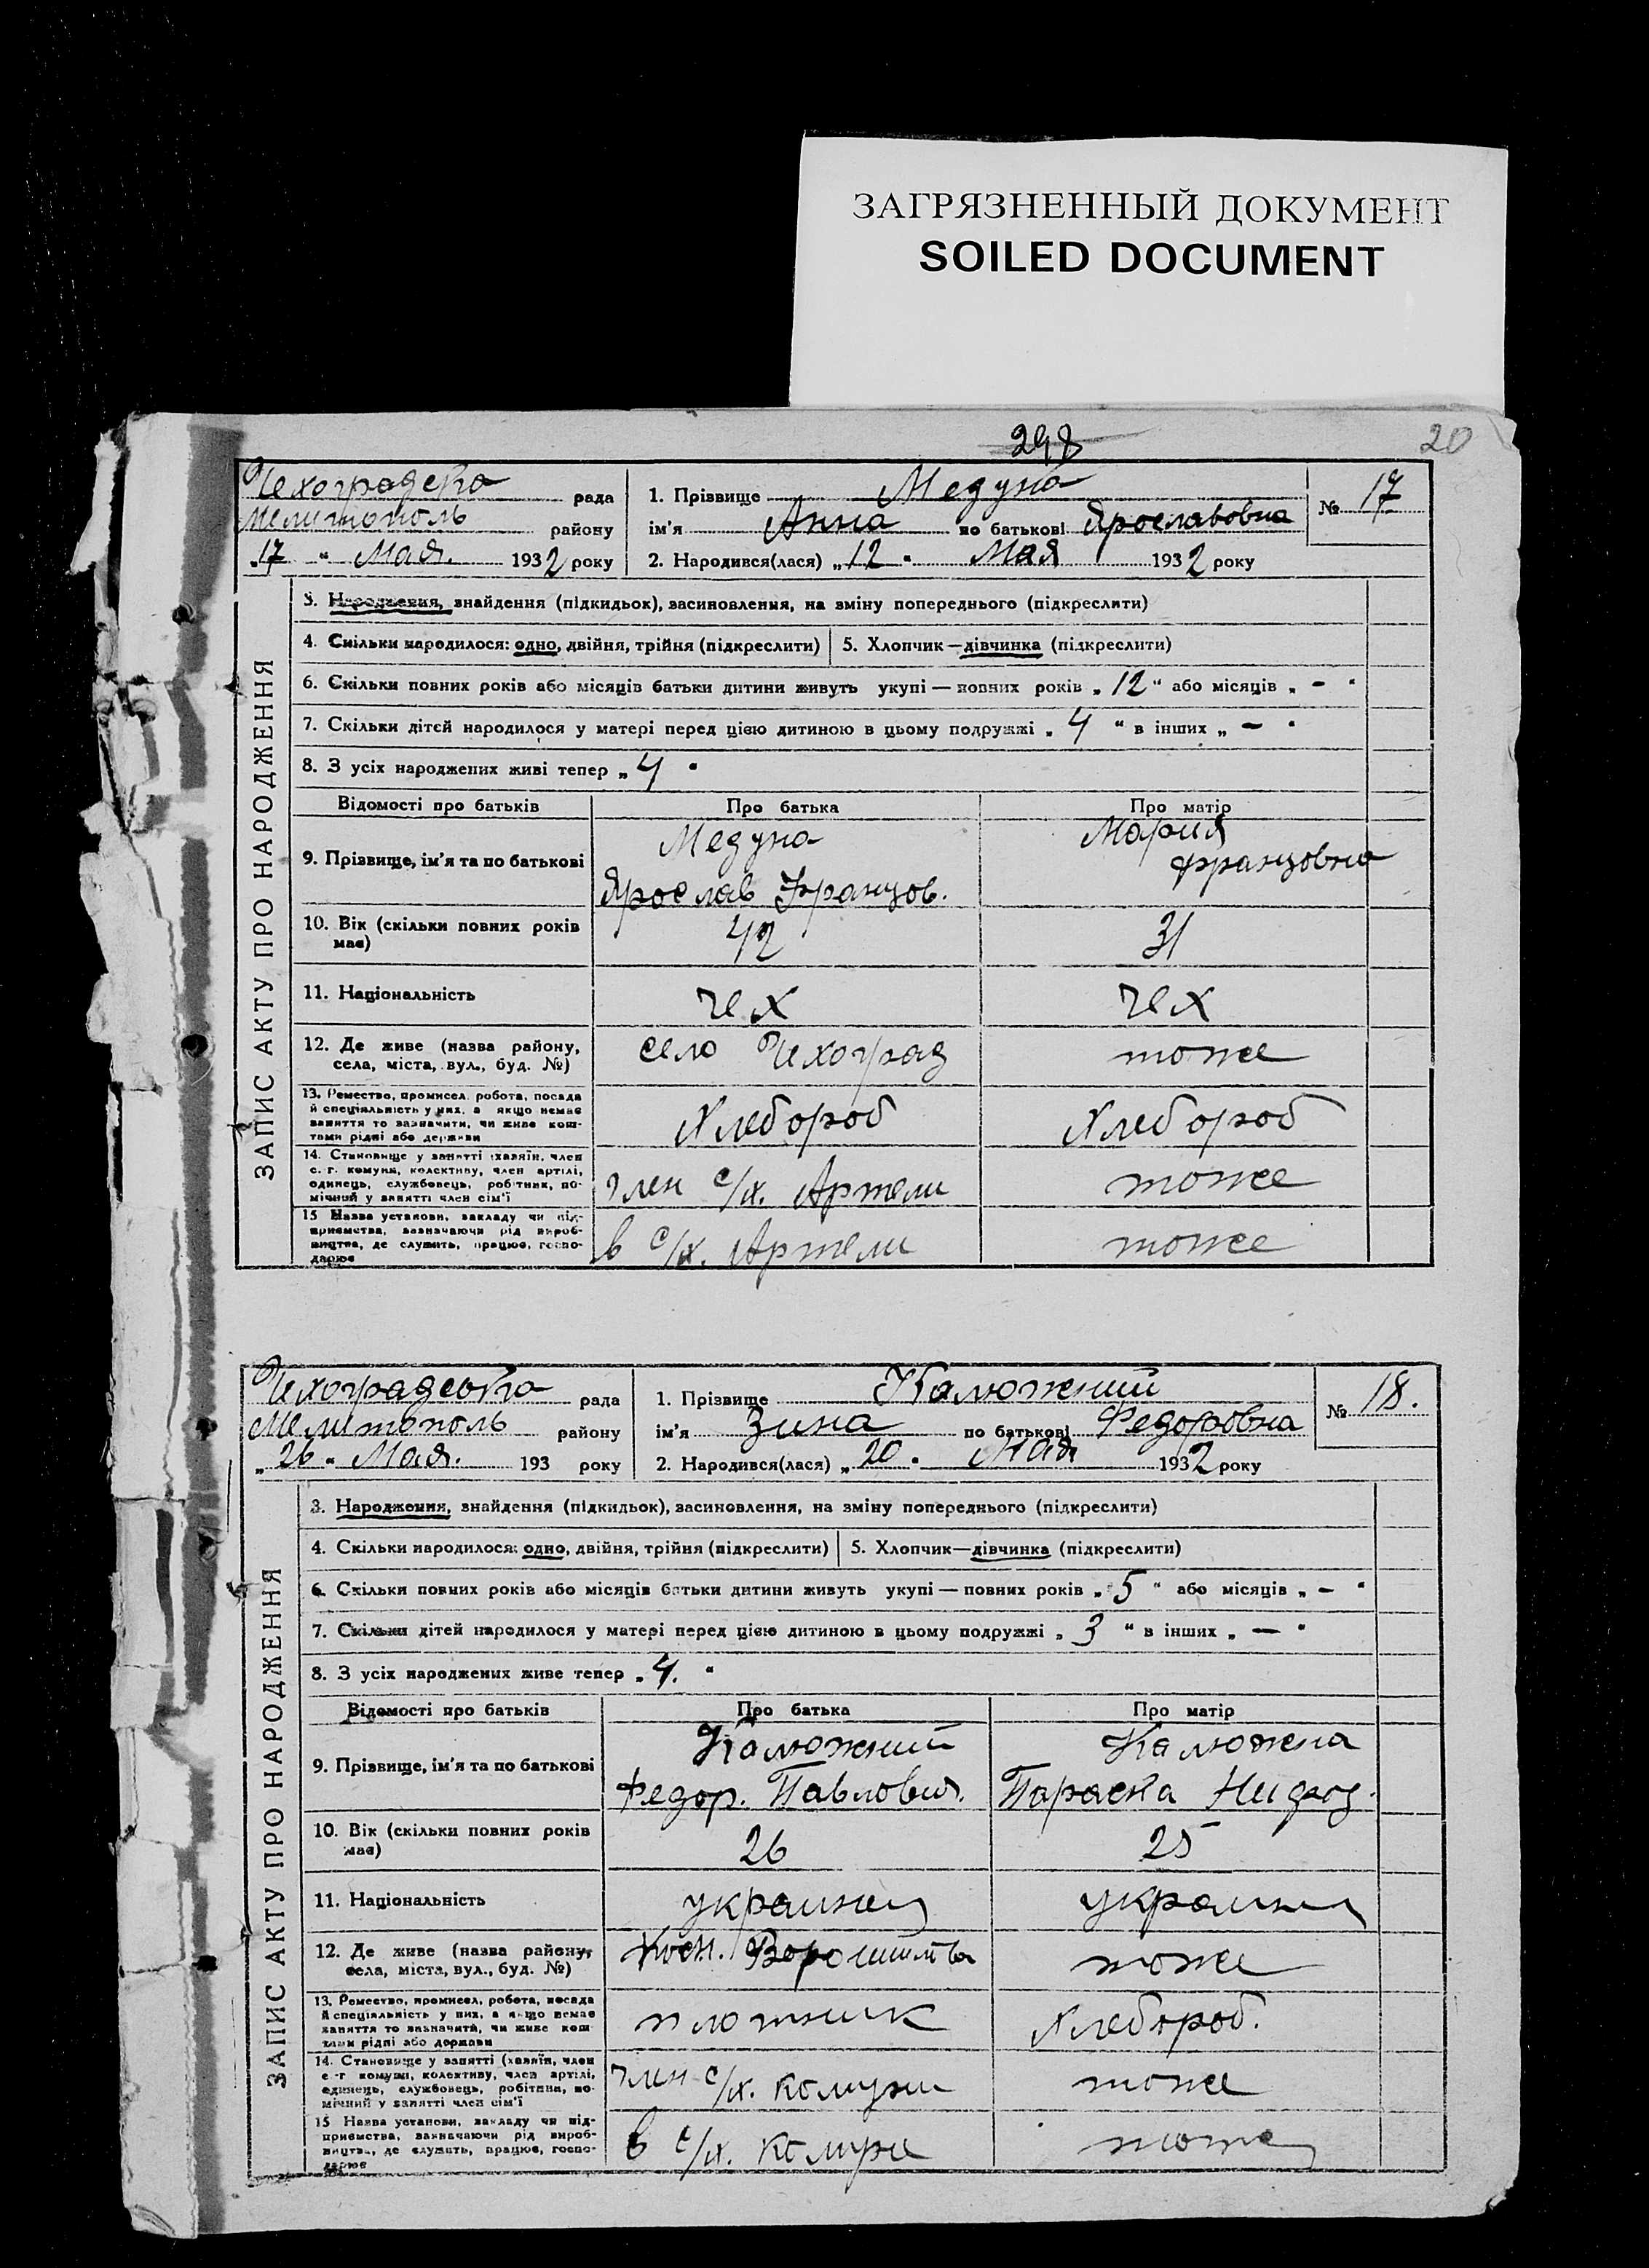 ЗАГРЯЗНЕННЫЙ ДОКУМЕНТ
SOILED DOCUMENT
298
20
Чехоградска рада
1. Прізвище Медуна
№ 17
Мелитополь району
ім'я Анна по батькові Ярославовна
„17 “ Мая. 1932 року
2. Народився(лася) „12 “ Мая 1932 року
ЗАПИС АКТУ ПРО НАРОДЖЕННЯ
3. Народження, знайдення (підкидьок), засиновлення, на зміну попереднього (підкреслити)
4. Скільки народилося: одно, двійня, трійня (підкреслити) 5. Хлопчик—дівчинка (підкреслити)
6. Скільки повних років або місяців батьки дитини живуть укупі — повних років „ 12 “ або місяців „ – “
7. Скільки дітей народилося у матері перед цією дитиною в цьому подружжі „ 4 “ в інших „ – “
8. З усіх народжених живі тепер „ 4 “
Відомості про батьків Про батька Про матір
9. Прізвище, ім'я та по батькові
Медуна
Ярослав Францов.
Мария
Францовна
10. Вік (скільки повних років
має)
42
31
11. Національність
чех
чех
12. Де живе (назва району,
села, міста, вул., буд. №)
село Чехоград
тоже
13. Ремество, промисел, робота, посада
й спеціяльність у них, а якщо немає
заняття то зазначити, чи живе кош-
тами рідні або держави
Хлебороб
Хлебороб
14. Становище у занятті (хазяїн, член
с.-г. комуни, колективу, член артілі,
одинець, службовець, робітник, по-
мічний у занятті член сім'ї
член с/х. Артели
тоже
15 Назва установи, закладу чи під-
приємства, зазначаючи рід вироб-
ництва, де служить, працює, госпо-
дарює
в с/х. Артели
тоже
Чехоградська рада
1. Прізвище Калюжний
№ 18.
Мелитополь району
ім'я Зина по батькові Федоровна
„ 26 “ Мая. 193 року
2. Народився(лася) „ 20 “ Мая 1932 року
ЗАПИС АКТУ ПРО НАРОДЖЕННЯ
3. Народження, знайдення (підкидьок), засиновлення, на зміну попереднього (підкреслити)
4. Скільки народилося: одно, двійня, трійня (підкреслити) 5. Хлопчик—дівчинка (підкреслити)
6. Скільки повних років або місяців батьки дитини живуть укупі — повних років „ 5 “ або місяців „ – “
7. Скільки дітей народилося у матері перед цією дитиною в цьому подружжі „ 3 “ в інших „ — “
8. З усіх народжених живе тепер „ 4. “
Відомості про батьків Про батька Про матір
9. Прізвище, ім'я та по батькові
Калюжний
Федор. Павлович.
Калюжна
Параска
10. Вік (скільки повних років
має)
26
25
11. Національність
украинец
украинец
12. Де живе (назва району,
села, міста, вул., буд. №)
Ворошилова
тоже
13. Ремество, промисел, робота, посада
й спеціяльність у них, а якщо немає
заняття то зазначити, чи живе кош-
тами рідні або держави
плотник
Хлебороб.
14. Становище у занятті (хазяїн, член
с.-г комуни, колективу, член артілі,
одинець, службовець, робітник, по-
мічний у занятті член сім'ї
член с/х. комуни
тоже
15 Назва установи, закладу чи під-
приємства, зазначаючи рід вироб-
ництва, де служить, працює, госпо-
дарює
в с/х. комуне
тоже